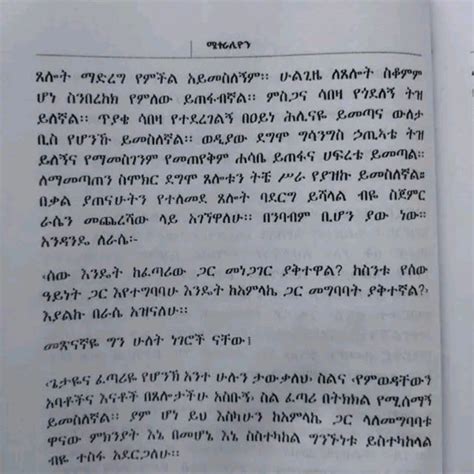 ሜተራሊዮን
ጸሎት ማድረግ የምችል አይመስለኝም፡፡ ሁልጊዜ ለጸሎት ስቆምም
ሆነ ስንበረከክ የምለው ይጠፋብኛል፡፡ ምስጋና ሳበዛ የጎደለኝ ትዝ
ይለኛል፡፡ ጥያቄ ሳበዛ የተደረገልኝ በዐይነ ሕሊናዬ ይመጣና ውለታ
ቢስ የሆንኹ ይመስለኛል፡፡ ወዲያው ደግሞ ግሳንግስ ኃጢአቴ ትዝ
ይለኝና የማመስገንም የመጠየቅም ሐሳቤ ይጠፋና ሀፍረቴ ይመጣል፡፡
ለማመጣጠን ስሞክር ደግሞ ጸሎቱን ትቼ ሥራ የያዝኩ ይመስለኛል፡፡
በቃል ያጠናሁትን የተለመደ ጸሎት ባደርግ ይሻላል ብዬ ስጀምር
ራሴን መጨረሻው ላይ አገኘዋለሁ፡፡ በንባብም ቢሆን ያው ነው፡፡
አንዳንዴ ለራሴ፡-
‹ሰው እንዴት ከፈጣሪው ጋር መነጋገር ያቅተዋል? ከስንቱ የሰው
ዓይነት ጋር እየተግባባሁ እንዴት ከአምላኬ ጋር መግባባት ያቅተኛል?›
እያልኩ በራሴ አዝናለሁ፡፡
መጽናኛዬ ግን ሁለት ነገሮች ናቸው፤
‹ጌታዬና ፈጣሪዬ የሆንኸ አንተ ሁሉን ታውቃለህ› ስልና ‹የምወዳችሁን
አባቶችና እናቶች በጸሎታችሁ አስቡኝ› ስል ፈጣሪ በትክክል የሚሰማኝ
ይመስለኛል፡፡ ያም ሆነ ይህ እስካሁን ከአምላኬ ጋር ላለመግባባቴ
ዋናው ምክንያት እኔ በመሆኔ እኔ ስስተካከል ግንኙነቱ ይስተካከላል
ብዬ ተስፋ አደርጋለሁ፡፡